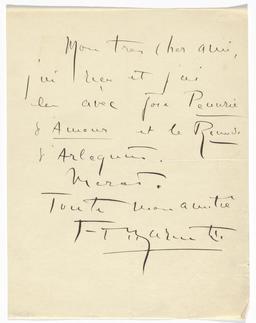 Mon très cher ami,
j'ai reçu et j'ai
lu avec joie
d'Amour et le
d'Arlequin.
Merci.
Toute mon amitié
F-T Marinetti